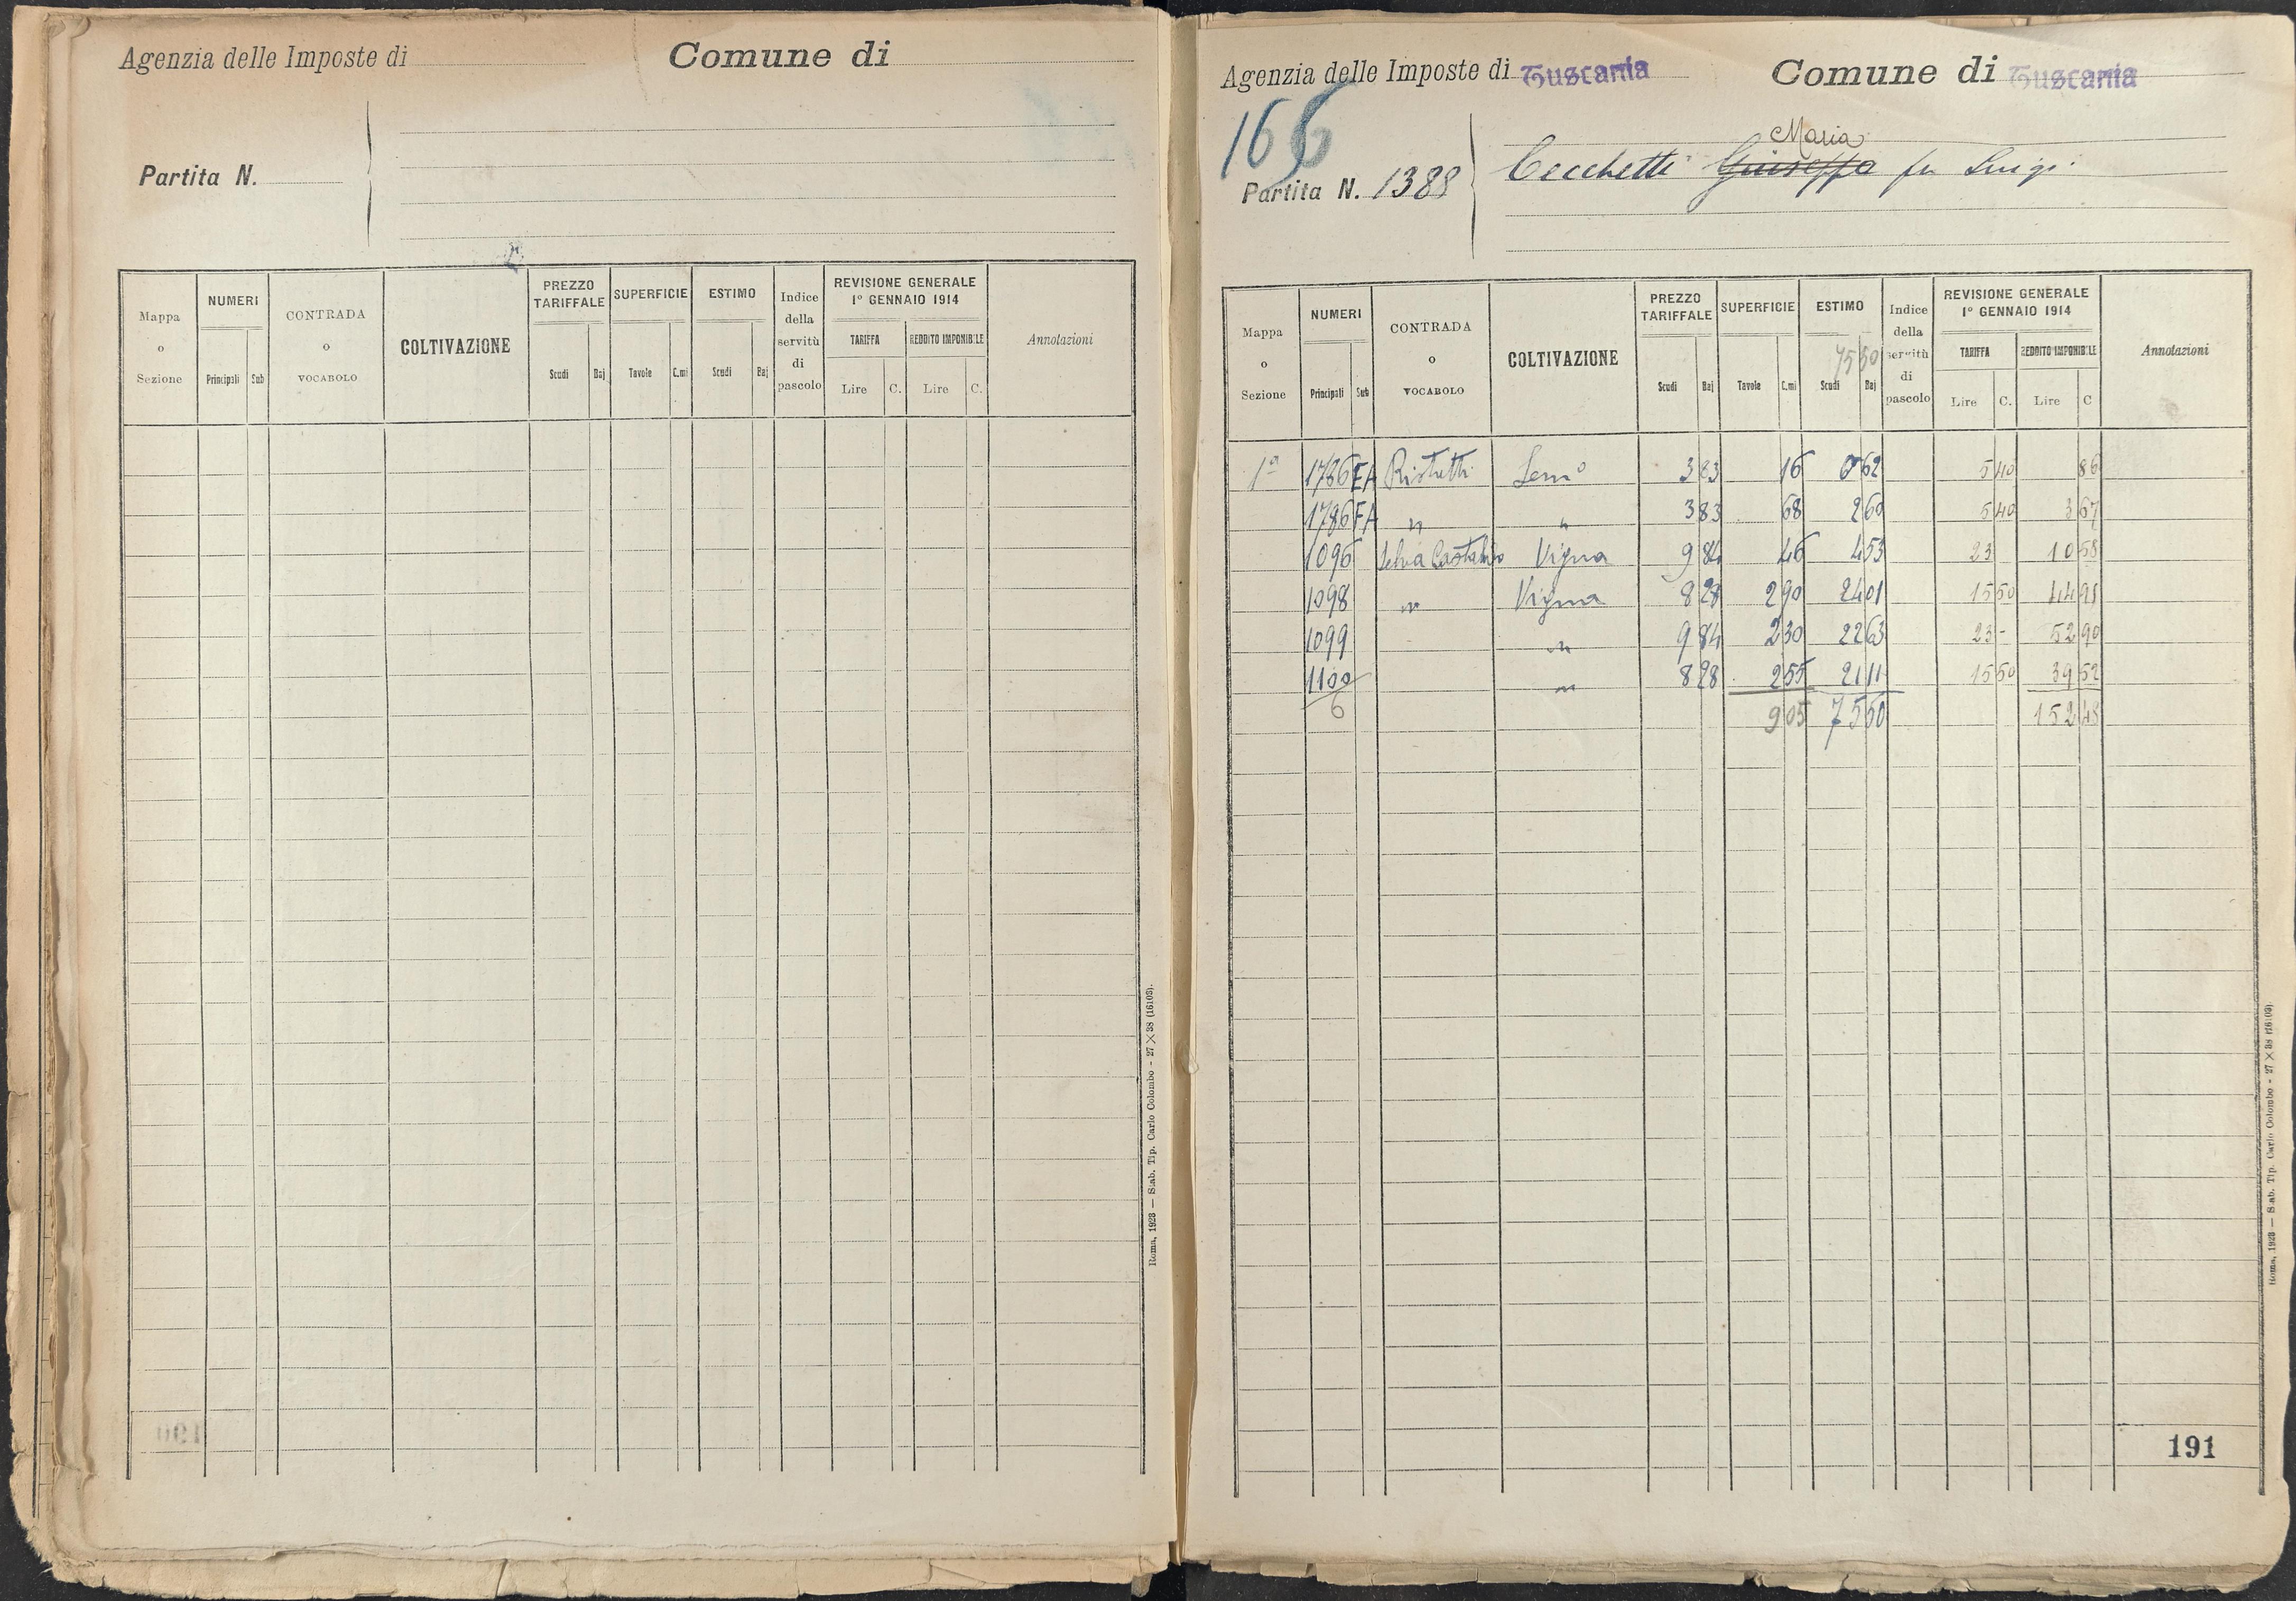 Agenzia delle Imposte di
Comune di
Partita N.
Mappa o Sezione
NUMERI
Principali
Sub
CONTRADA o VOCABOLO
COLTIVAZIONE
PREZZO TARIFFALE
Scudi
Baj
SUPERFICIE
Tavole
C.mi
ESTIMO
Scudi
Baj
Indice della servitù di pascolo
REVISIONE GENERALE
1° GENNAIO 1914
TARIFFA
Lire
C.
REDDITO IMPONIBILE
Lire
C.
Annotazioni
Roma, 1923 — Stab. Tip. Carlo Colombo - 27 X 38 (16103).
Agenzia delle Imposte di Tuscania
Comune di Tuscania
166
Partita N. 1388
Maria
Cecchetti Giuseppa fu Luigi
Mappa o Sezione
NUMERI
Principali
Sub
CONTRADA o VOCABOLO
COLTIVAZIONE
PREZZO TARIFFALE
Scudi
Baj
SUPERFICIE
Tavole
C.mi
ESTIMO
75 50
Scudi
Baj
Indice della servitù di pascolo
REVISIONE GENERALE
1° GENNAIO 1914
TARIFFA
Lire
C.
REDDITO IMPONIBILE
Lire
C
Annotazioni
1a 1786 EA Rischetti Semo 3 83 16 0 62 5 40 86
1786 FA " " 3 83 68 2 60 5 40 3 67
1096 Selva Vigna 9 84 46 4 53 23 10 58
1098 " Vigna 8 28 2 90 24 01 15 50 44 95
1099 " 9 84 2 30 22 63 23 - 52 90
1100 " 8 28 2 55 21 11 15 50 39 52
6 9 05 75 50 152 48
191
Roma, 1923 — Stab. Tip. Carlo Colombo - 27 X 38 (16103).